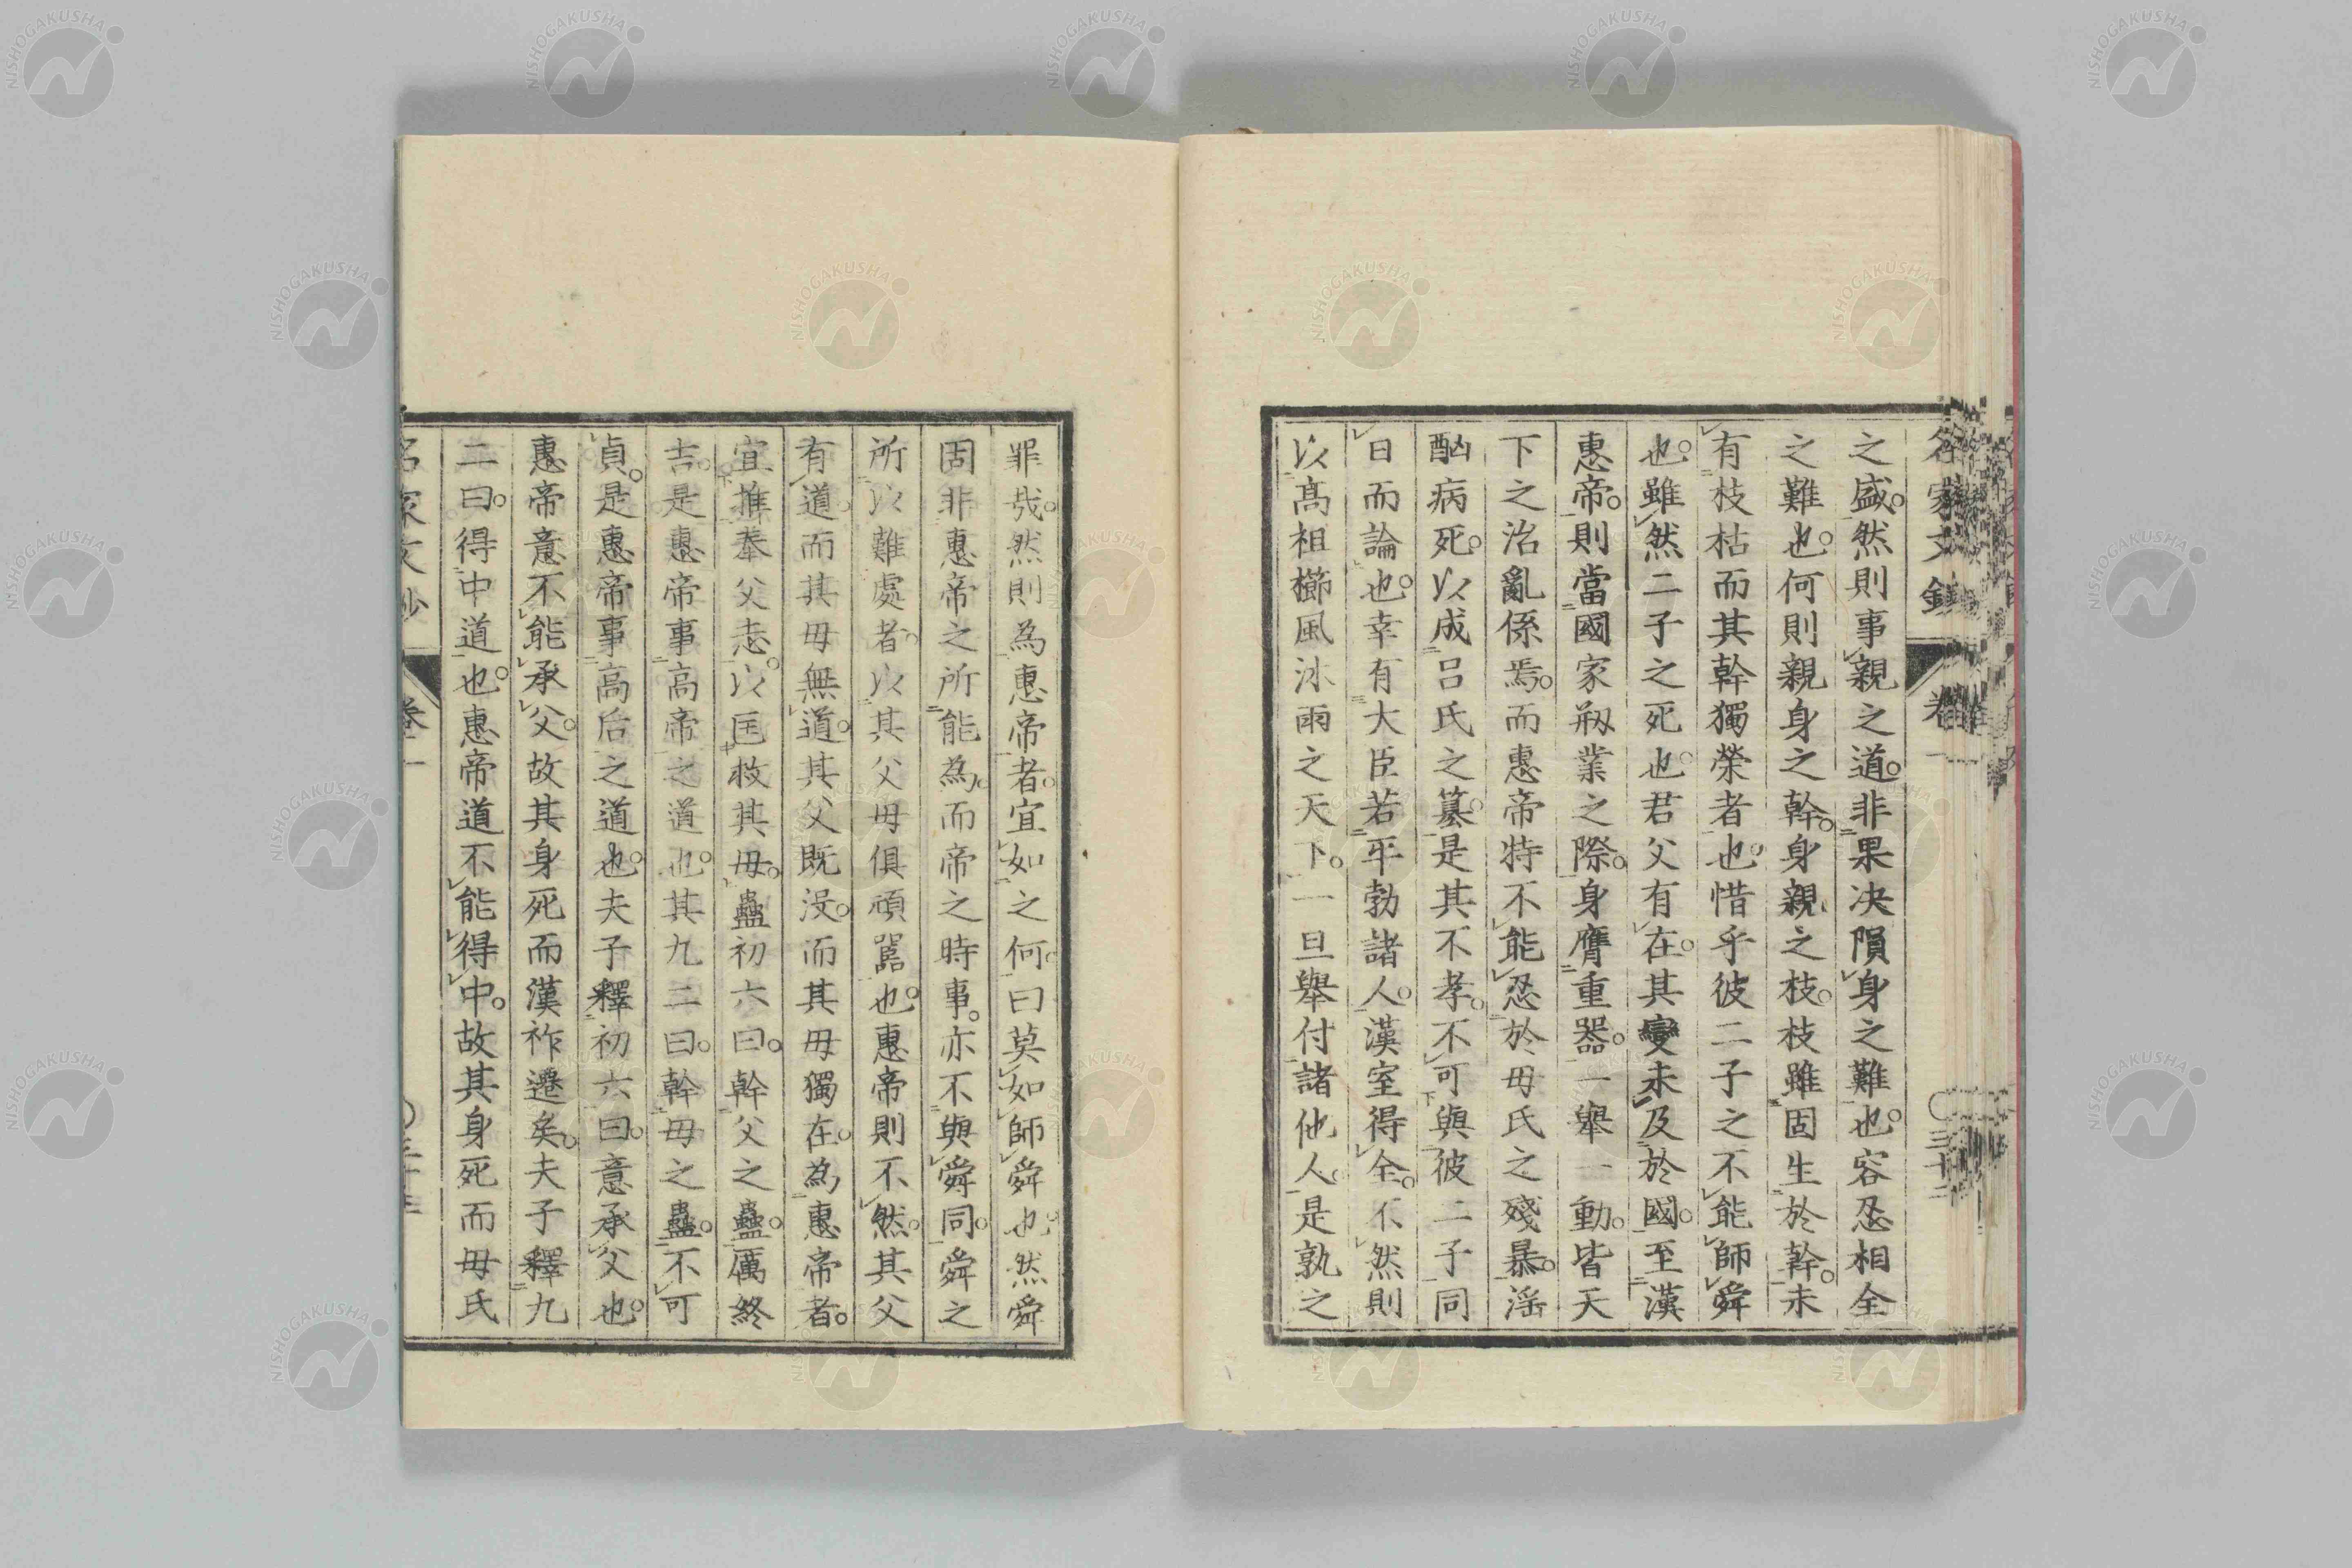 之盛。然則事親之道。非果决隕身之難也。容忍相全
之難也。何則親身之幹。身親之枝。枝雖固生於幹。未
有枝枯而其幹獨榮者也。惜乎彼二子之不能師舜
也。雖然二子之死也。君父有在。其變未及於國。至漢
惠帝。則當國家刱業之際。身膺重器。一舉一動。皆天
下之治亂係焉。而惠帝特不能忍於毋氏之殘暴。滛
酗病死。以成呂氏之簒。是其不孝。不可與彼二子同
日而論也。幸有大臣若平勃諸人。漢室得全。不然則
以高祖櫛風沐雨之天下。一旦舉付諸他人。是孰之
罪哉。然則為惠帝者。宜如之何。曰莫如師舜也。然舜
固非惠帝之所能為。而帝之時事。亦不與舜同。舜之
所以難處者。以其父毋俱頑嚚也。惠帝則不然。其父
有道而其毋無道。其父既没。而其毋獨在。為惠帝者。
宜推奉父志。以匡救其毋。蠱初六曰。幹父之蠱。厲終
吉。是惠帝事高帝之道也。其九二曰。幹毋之蠱。不可
貞。是惠帝事高后之道也。夫子釋初六曰。意承父也。
惠帝意不能承父。故其身死而漢祚遷矣。夫子釋九
二曰。得中道也。惠帝道不能得中。故其身死而毋氏
名家文鈔 卷一
NISHOGAKUSHA